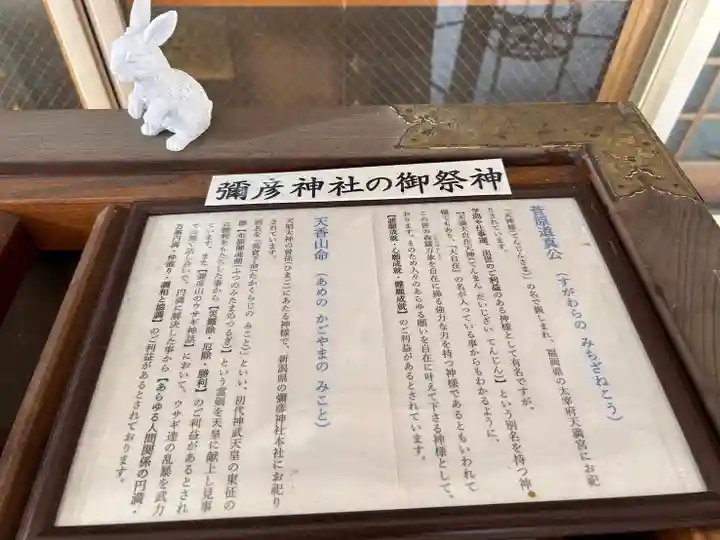 彌彦神社の御祭神
菅原道真公(すがわらの みちざねこう)
「天神様(てんじんさま)」の名で親しまれ、福岡県の太宰府天満宮にお祀
りされています。
学問や仕事運、出世のご利益のある神様として有名ですが、
【天満大自在天神(てんまん だいじざい てんじん)】という別名を持つ神
様でもあり、「大自在」の名が入っている事からもわかるように、
この世の森羅万象を自在に操る強力な力を持つ神様であるともいわれて
おります。そのため人々のあらゆる願いを自在に叶えて下さる神様として、
【諸願成就・心願成就・難願成就】のご利益があるとされています。
天香山命(あめの かごやまの みこと)
天照大神の曽孫(ひまご)にあたる神様で、新潟県の彌彦神社本社にお祀り
されています。
別名を「高倉下命(たかくらじの みこと)」といい、初代神武天皇の東征の
際【布都御魂剣(ふつのみたまのつるぎ)】という霊剣を天皇に献上し見事
に勝利をもたらした事から【災難除・厄除・勝利】のご利益があるとされ
ています。また【彌彦山のウサギ神話】において、ウサギ達の乱暴を武力
でなく話し合いで、円満に解決した事から【あらゆる人間関係の円満・
万事円満・仲直り・調和と協調】のご利益があるとされております。